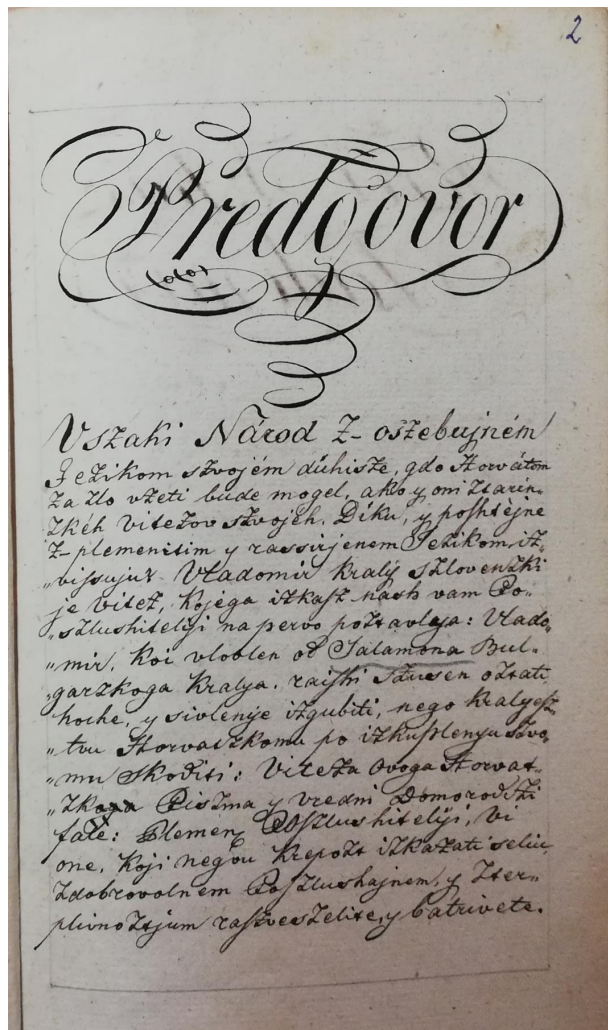 2
Predgovor
Vszaki Národ z-oszebujném
Jezikom szvojém dúhisze, gdo Horvátom
za zlo vzeti bude mogel, ako y oni ztarin-
zkéh vitezov szvojeh, Diku, y poshtejne
z-plemenitim y rassirjenem Jezikom iz-
„vissuju? Vladomir Kralÿ szlovenzki
je vitez, kojega izkasz nash vam Po-
„szlushitelyi na pervo poztavlya: Vlado-
„mir, koi vloblen od Salamona Bul-
„garzkoga Kralya, raishi szusen oztati
hoche, y sivlenje izgubiti, nego Kralyesz-
„tvu Horvatzkomu po izkuslenyu szvo-
„mu skoditi: viteza ovoga Horvat-
„zkoga Piszma y vredni Domorodszi
fale: Plemen. Poszlushitelyi, vi
one, koji negvu krepozt izkazati seliu,
zdobrovolnem Poszlushajnem, y zter-
plivnoztjum razveszelite, y batrivete.